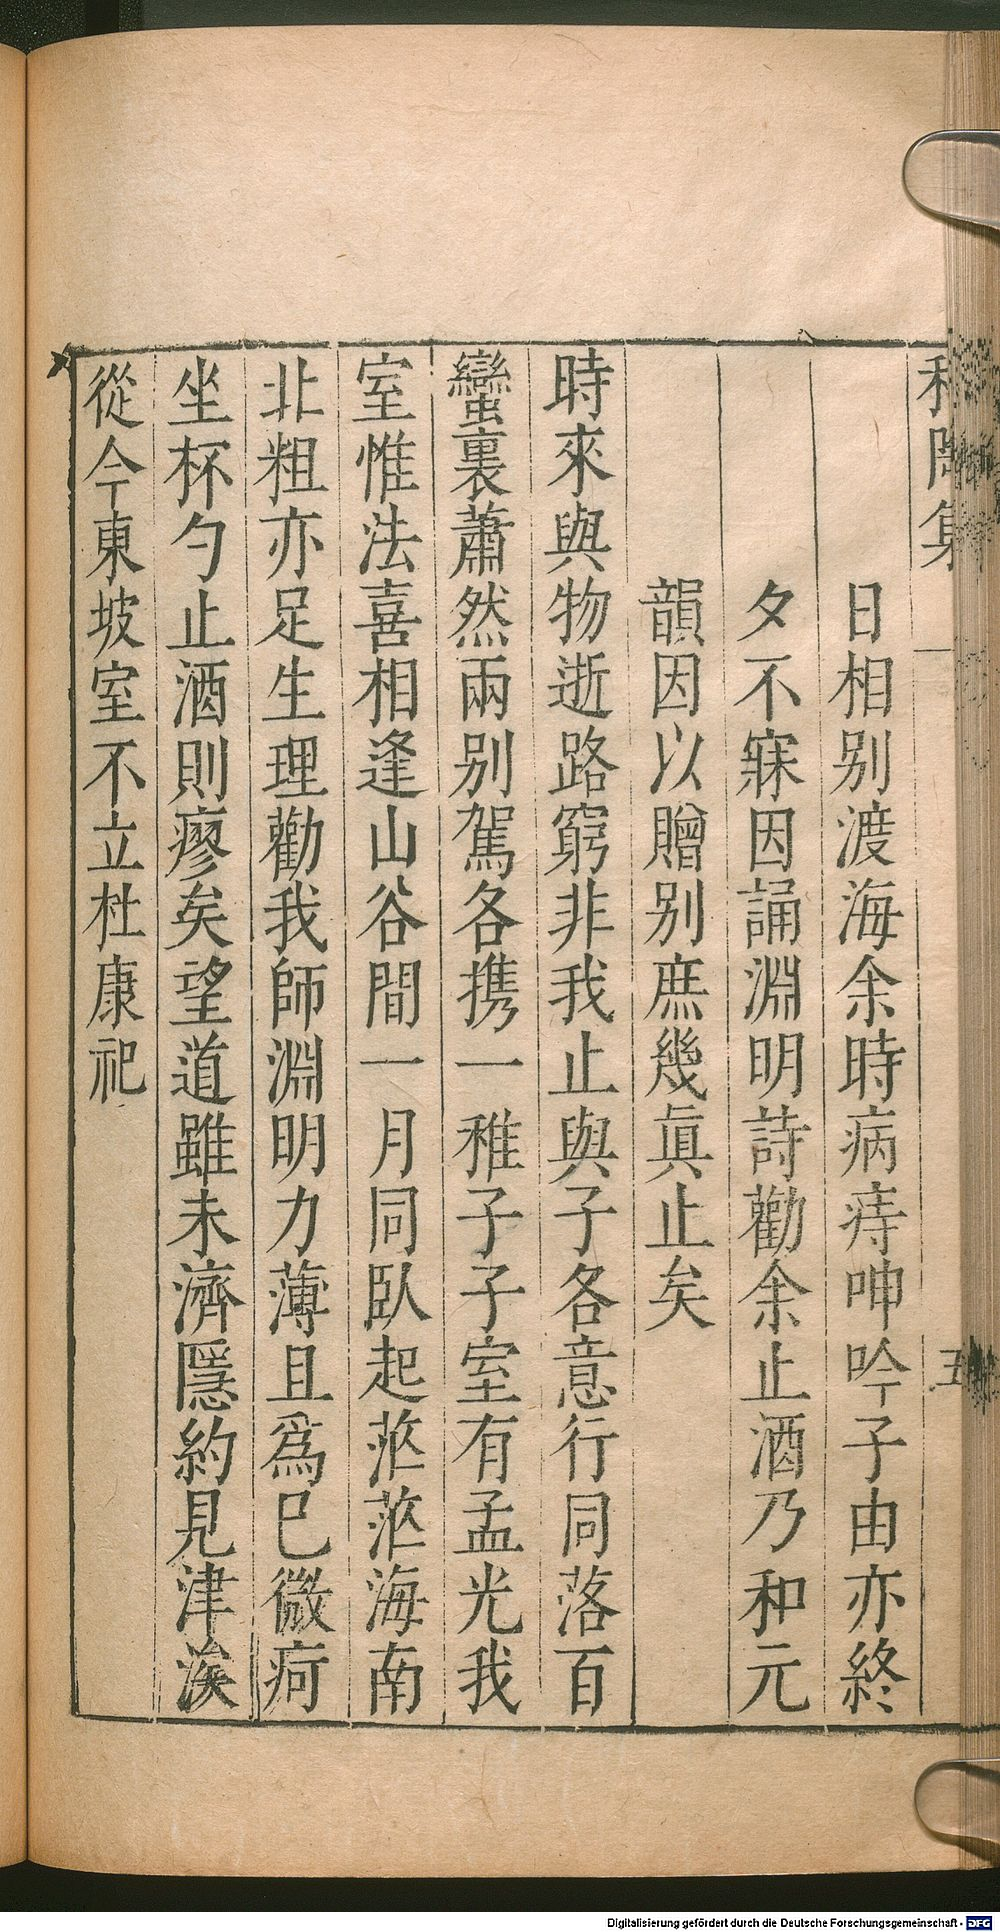 和陶集 一 五
日相别渡海余時病痔呻吟子由亦終
夕不寐因誦淵明詩勸余止酒乃和元
韻因以贈别庶幾眞止矣
時來與物逝路窮非我止與子各意行同落百
蠻裏蕭然兩别駕各携一稚子子室有孟光我
室惟法喜相逢山谷間一月同臥起茫茫海南
北粗亦足生理勸我師淵明力薄且爲巳微疴
坐杯勺止酒則瘳矣望道雖未濟隱約見津涘
從今東坡室不立杜康祀
Digitalisierung gefördert durch die Deutsche Forschungsgemeinschaft - DFG